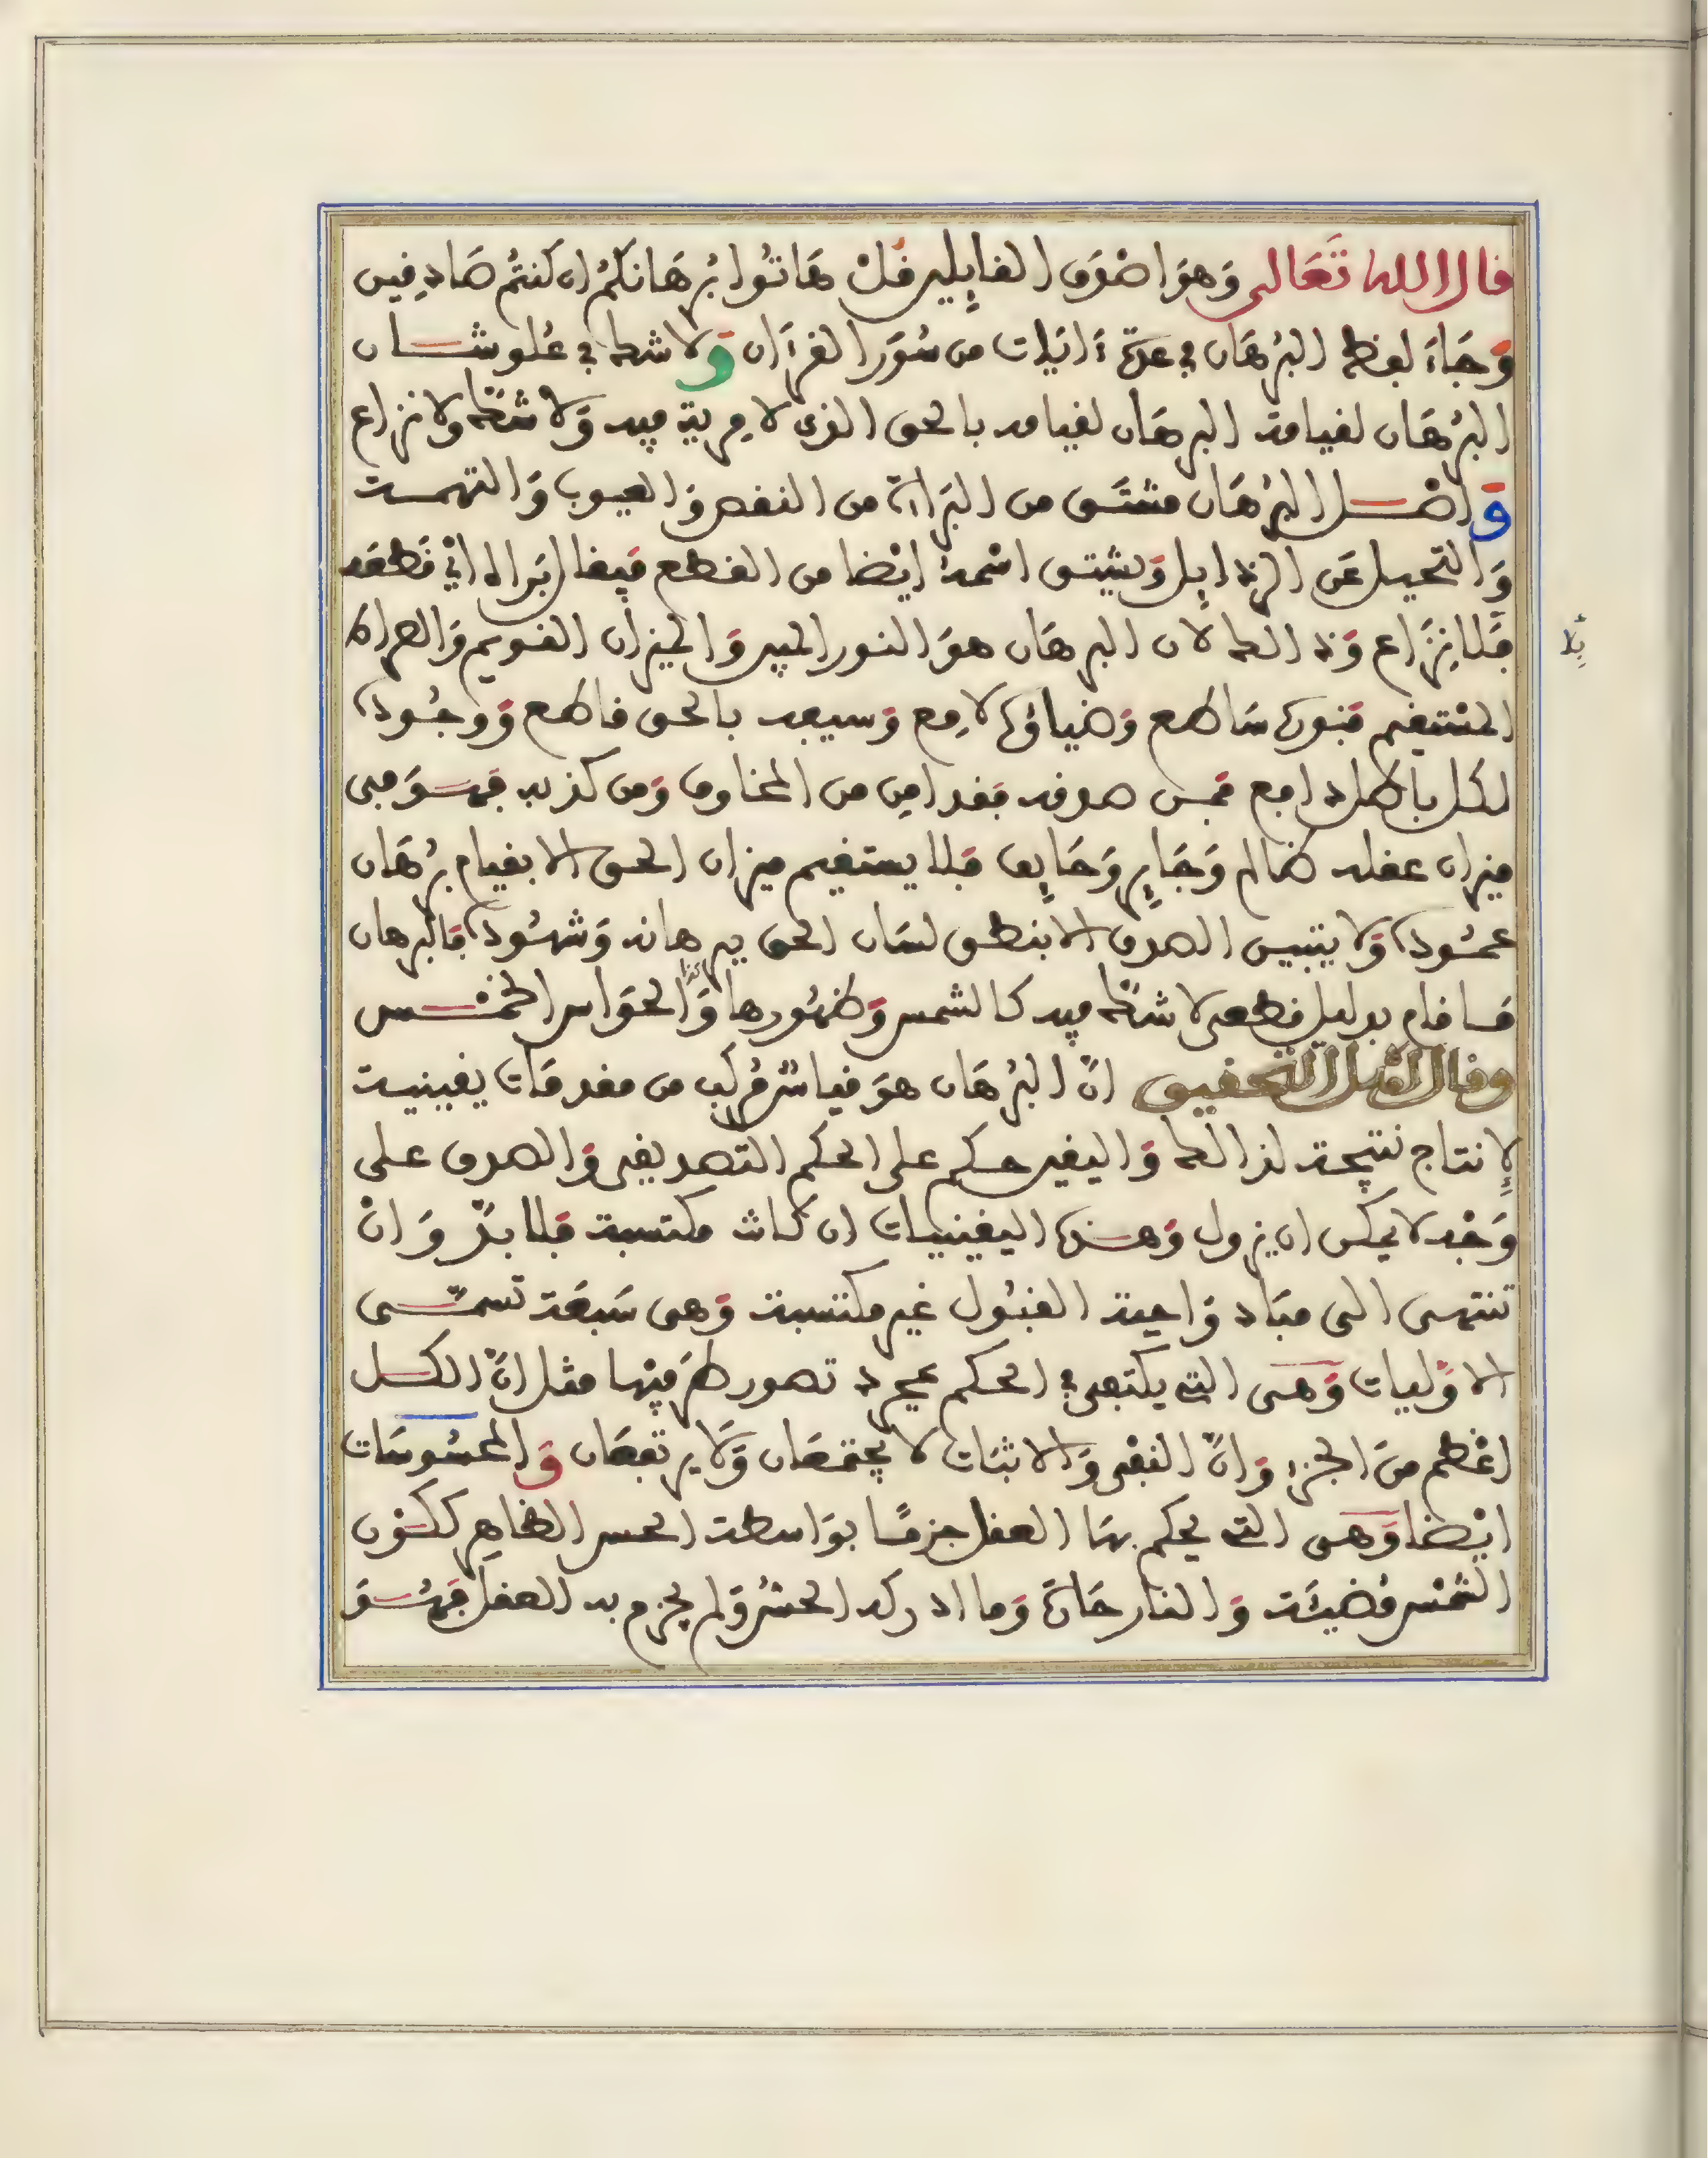 قال الله تعالى وهو اصْدَق القايِلين قُلْ هَاتُوا بُرْهَانكُمْ ان كُنتُم صَادِقِين
وَجَاءَ لفظ البُرْهَان في عدة ءايَات من سُوَر القرءَان وَلا شك في عُلو شان
البُرْهَان لقيامة البرهَان لقيامه بالحق الذى لا مِرية فيه وَلا شَكّ ولا نزاع
وَاصْل البُرْهَان مشتَق من البَراءة من النقص وَالعيوب وَالتهمة
وَالتحيل عَن الرذايِل وَيشتق اسْمه ايْضا من القطع فيقال بَراه اىْ قَطَعَه
فَلا نِزَاع وَذالك لان البرهَان هوَ النور المبين وَالميزان القويم وَالصراط
المسْتقيم فنوره سَاطع وَضياؤه لامِع وَسيفه بالحق قاطع وَوجُوده
لكل باطل دامع فمن صدقه فقد امِن من المخاوف وَمن كذبه فهوَ فى
ميزان عقله ظالم وَجَايِر وَحَايِف فلا يستقيم ميزان الحق الا بقيام بُرْهَان
عمُوده وَلا يتبين الصدق الا بنطق لسَان الحق ببرهانه وَشهُوده فالبرهان
مَا قام بدليل قطعى لا شكّ فيه كالشمس وَظهُورها وَكذا الحوَاس الخمْس
وقال اهْل التحقيق انّ البُرْهَان هوَ قياسٌ مُركب من مقدمَات يقينية
لإنتاج نتيجة لذالك وَاليقين حكم على الحكم التصديقى وَالصدق على
وَجْه لا يمكن ان يزول وَهذه اليقينيات ان كانت مكتسبة فلا بدّ وَانْ
تنتهى الى مبَاد وَاجبة القبُول غير مكتسبة وَهى سَبعَة تسمّى
الاوّليات وَهى التى يكتفى في الحكم بمجرد تصور طرَفيْها مثل انّ الكل
اعْظم منَ الجزء وَانّ النفْى وَالاثبَات لا يجتمعَان وَلَا يرتفعَان وَالمحسُوسَات
ايْضا وَهى التى يحكم بهَا العقل جزمًا بوَاسطة الحس الظاهِر ككون
الشمْس مُضيئَة وَالنار حَارّة وَما ادركه الحسُّ وَلم يجزم به العقل فهُوَ
بلا